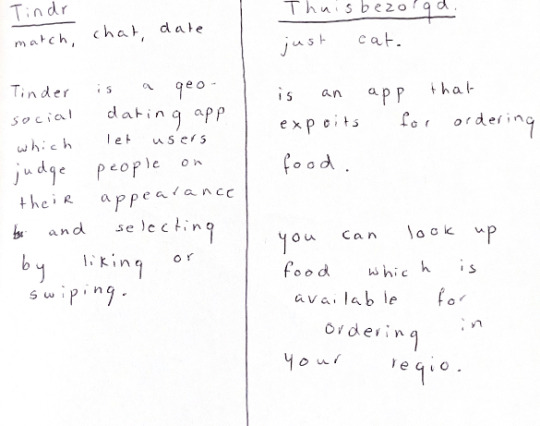 Tindr
match, chat, date
Tinder is a geo-
social dating app
which let users
judge people on
their appearance
and selecting
by liking or
swiping.
Thuisbezorgd.
just eat.
is an app that
expoits for ordering
food.
you can look up
food which is
available for
ordering in
your regio.